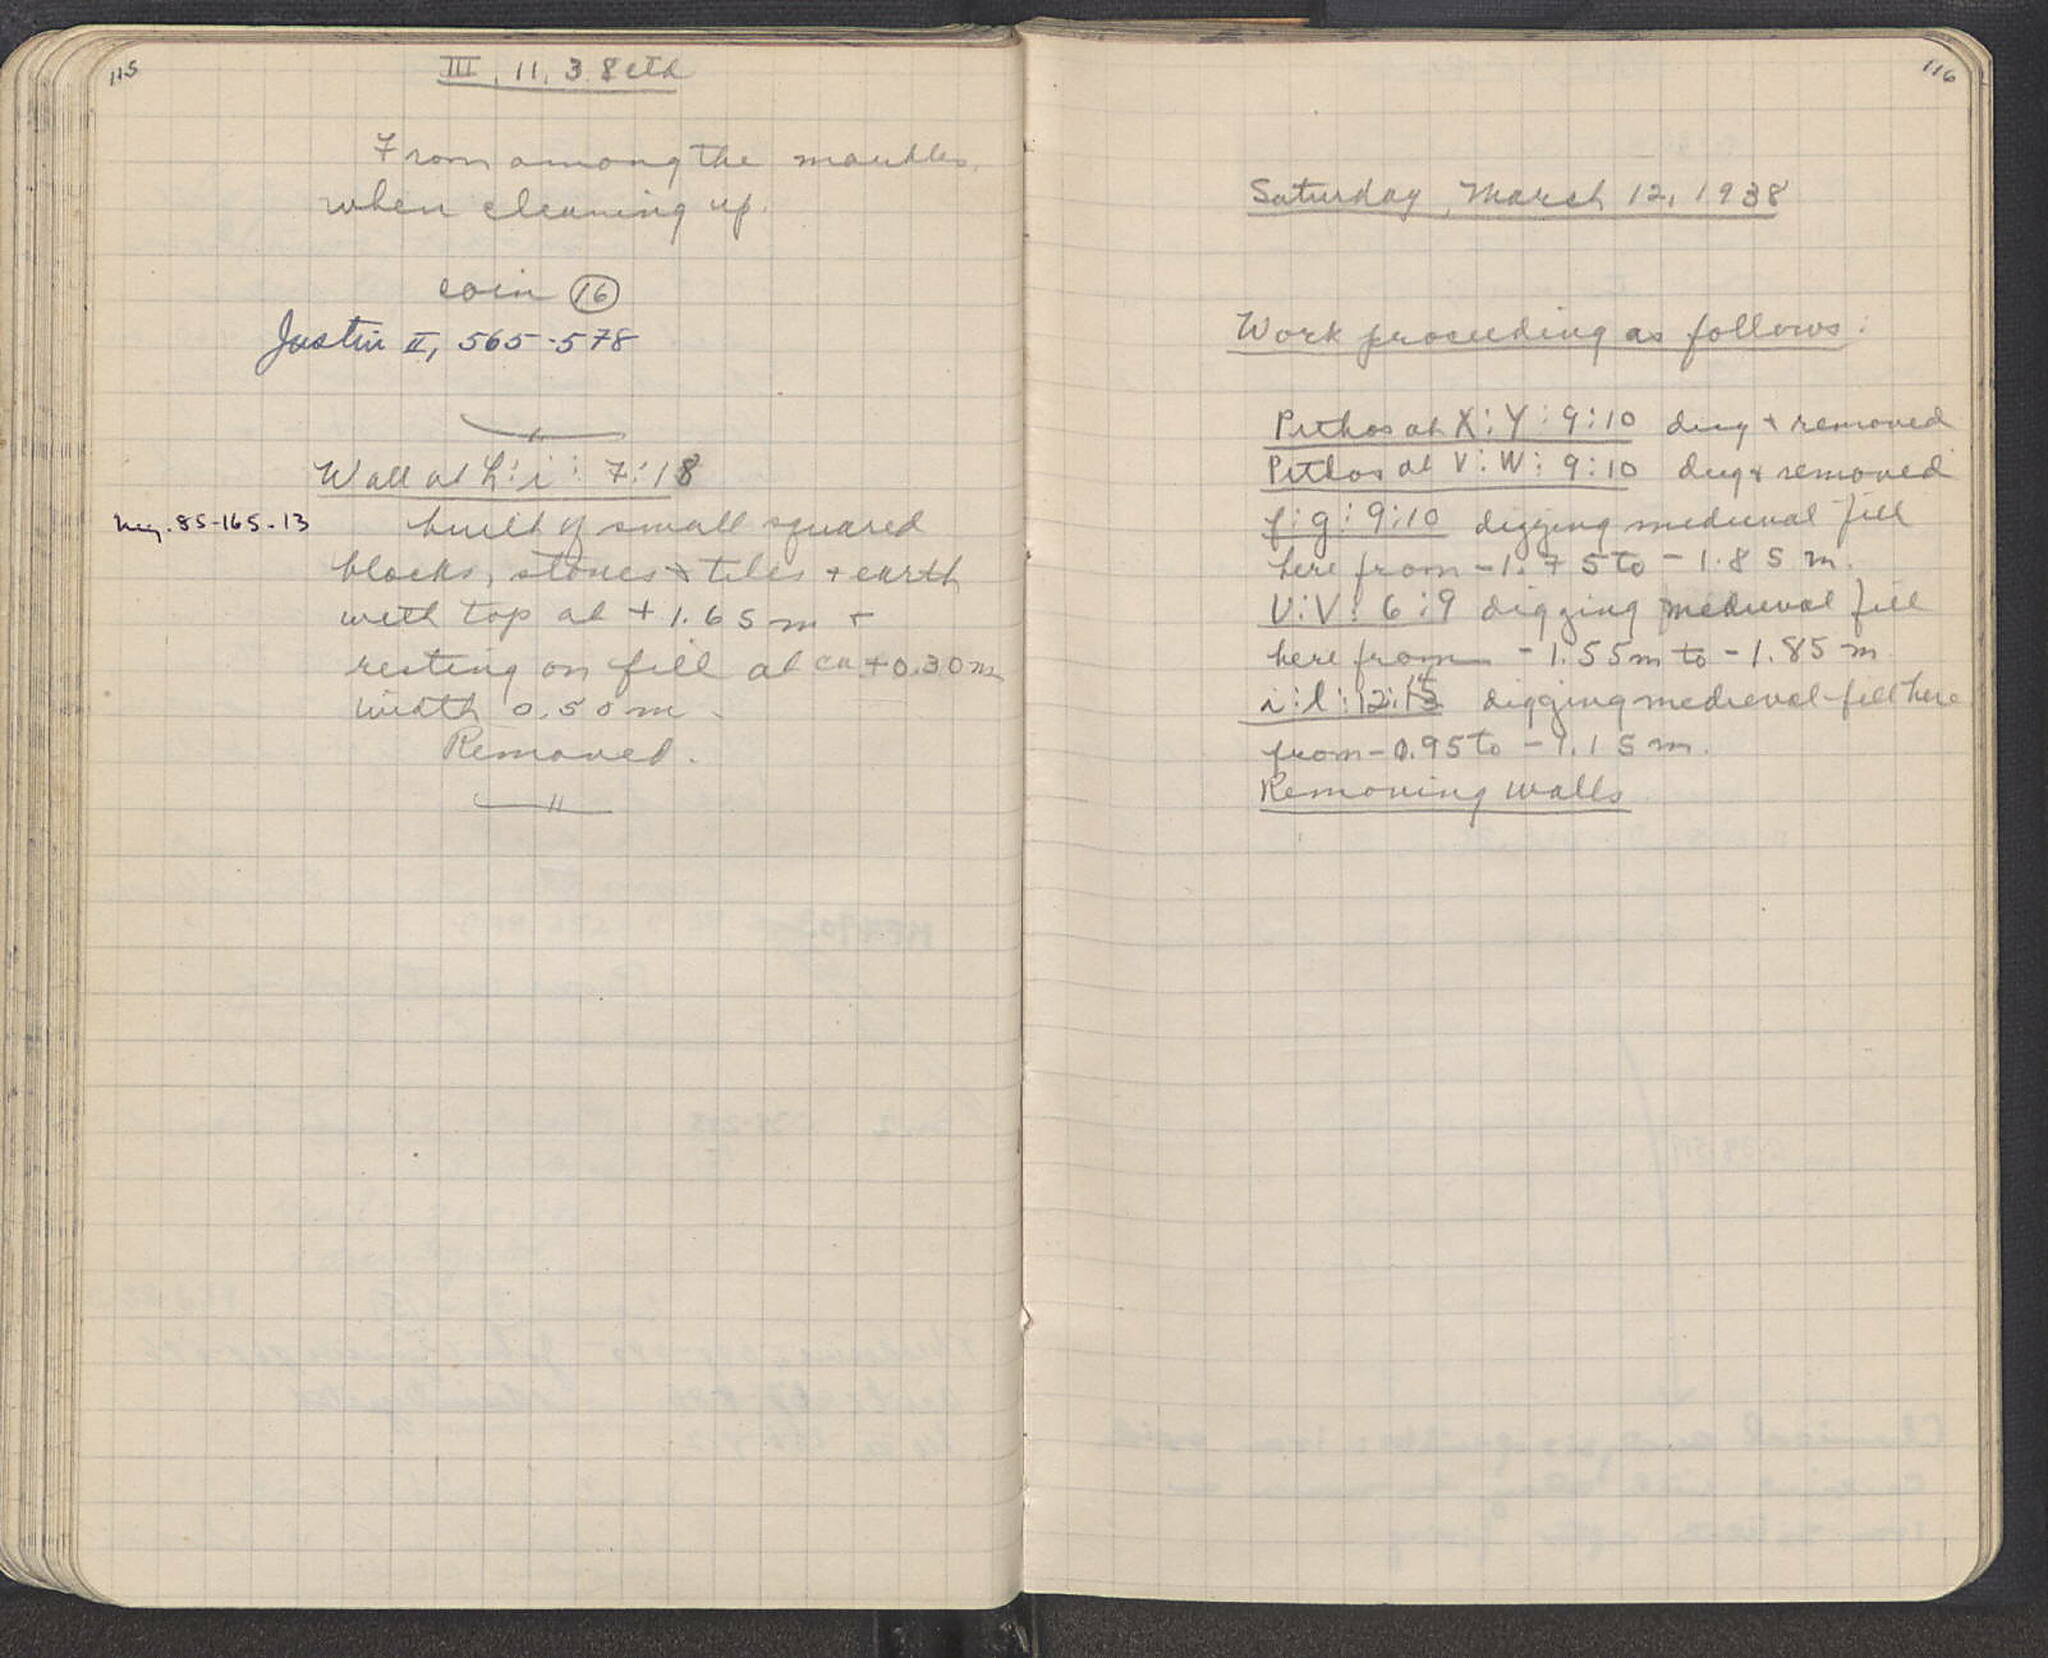 115
III, 11, 38 ctd
From among the marbles
when cleaning up.
coin 16
Justin II, 565-578
Wall at h:i: 7:18
Neg. 85-165-13
built of small squared
blocks, stones & tiles + earth
with top at + 1.65 m +
resting on fill at ca +0.30 m
width 0.50 m.
Removed.
116
Saturday, March 12, 1938
Work proceeding as follows:
Pithos at X:Y:9:10 dug + removed
Pithos at V:W:9:10 dug + removed
f:g:9:10 digging medieval fill
here from -1.75 to -1.85 m.
U:V:6:9 digging medieval fill
here from -1.55m to -1.85 m
i:l:12:14 digging medieval fill here
from -0.95 to -1.15 m.
Removing walls